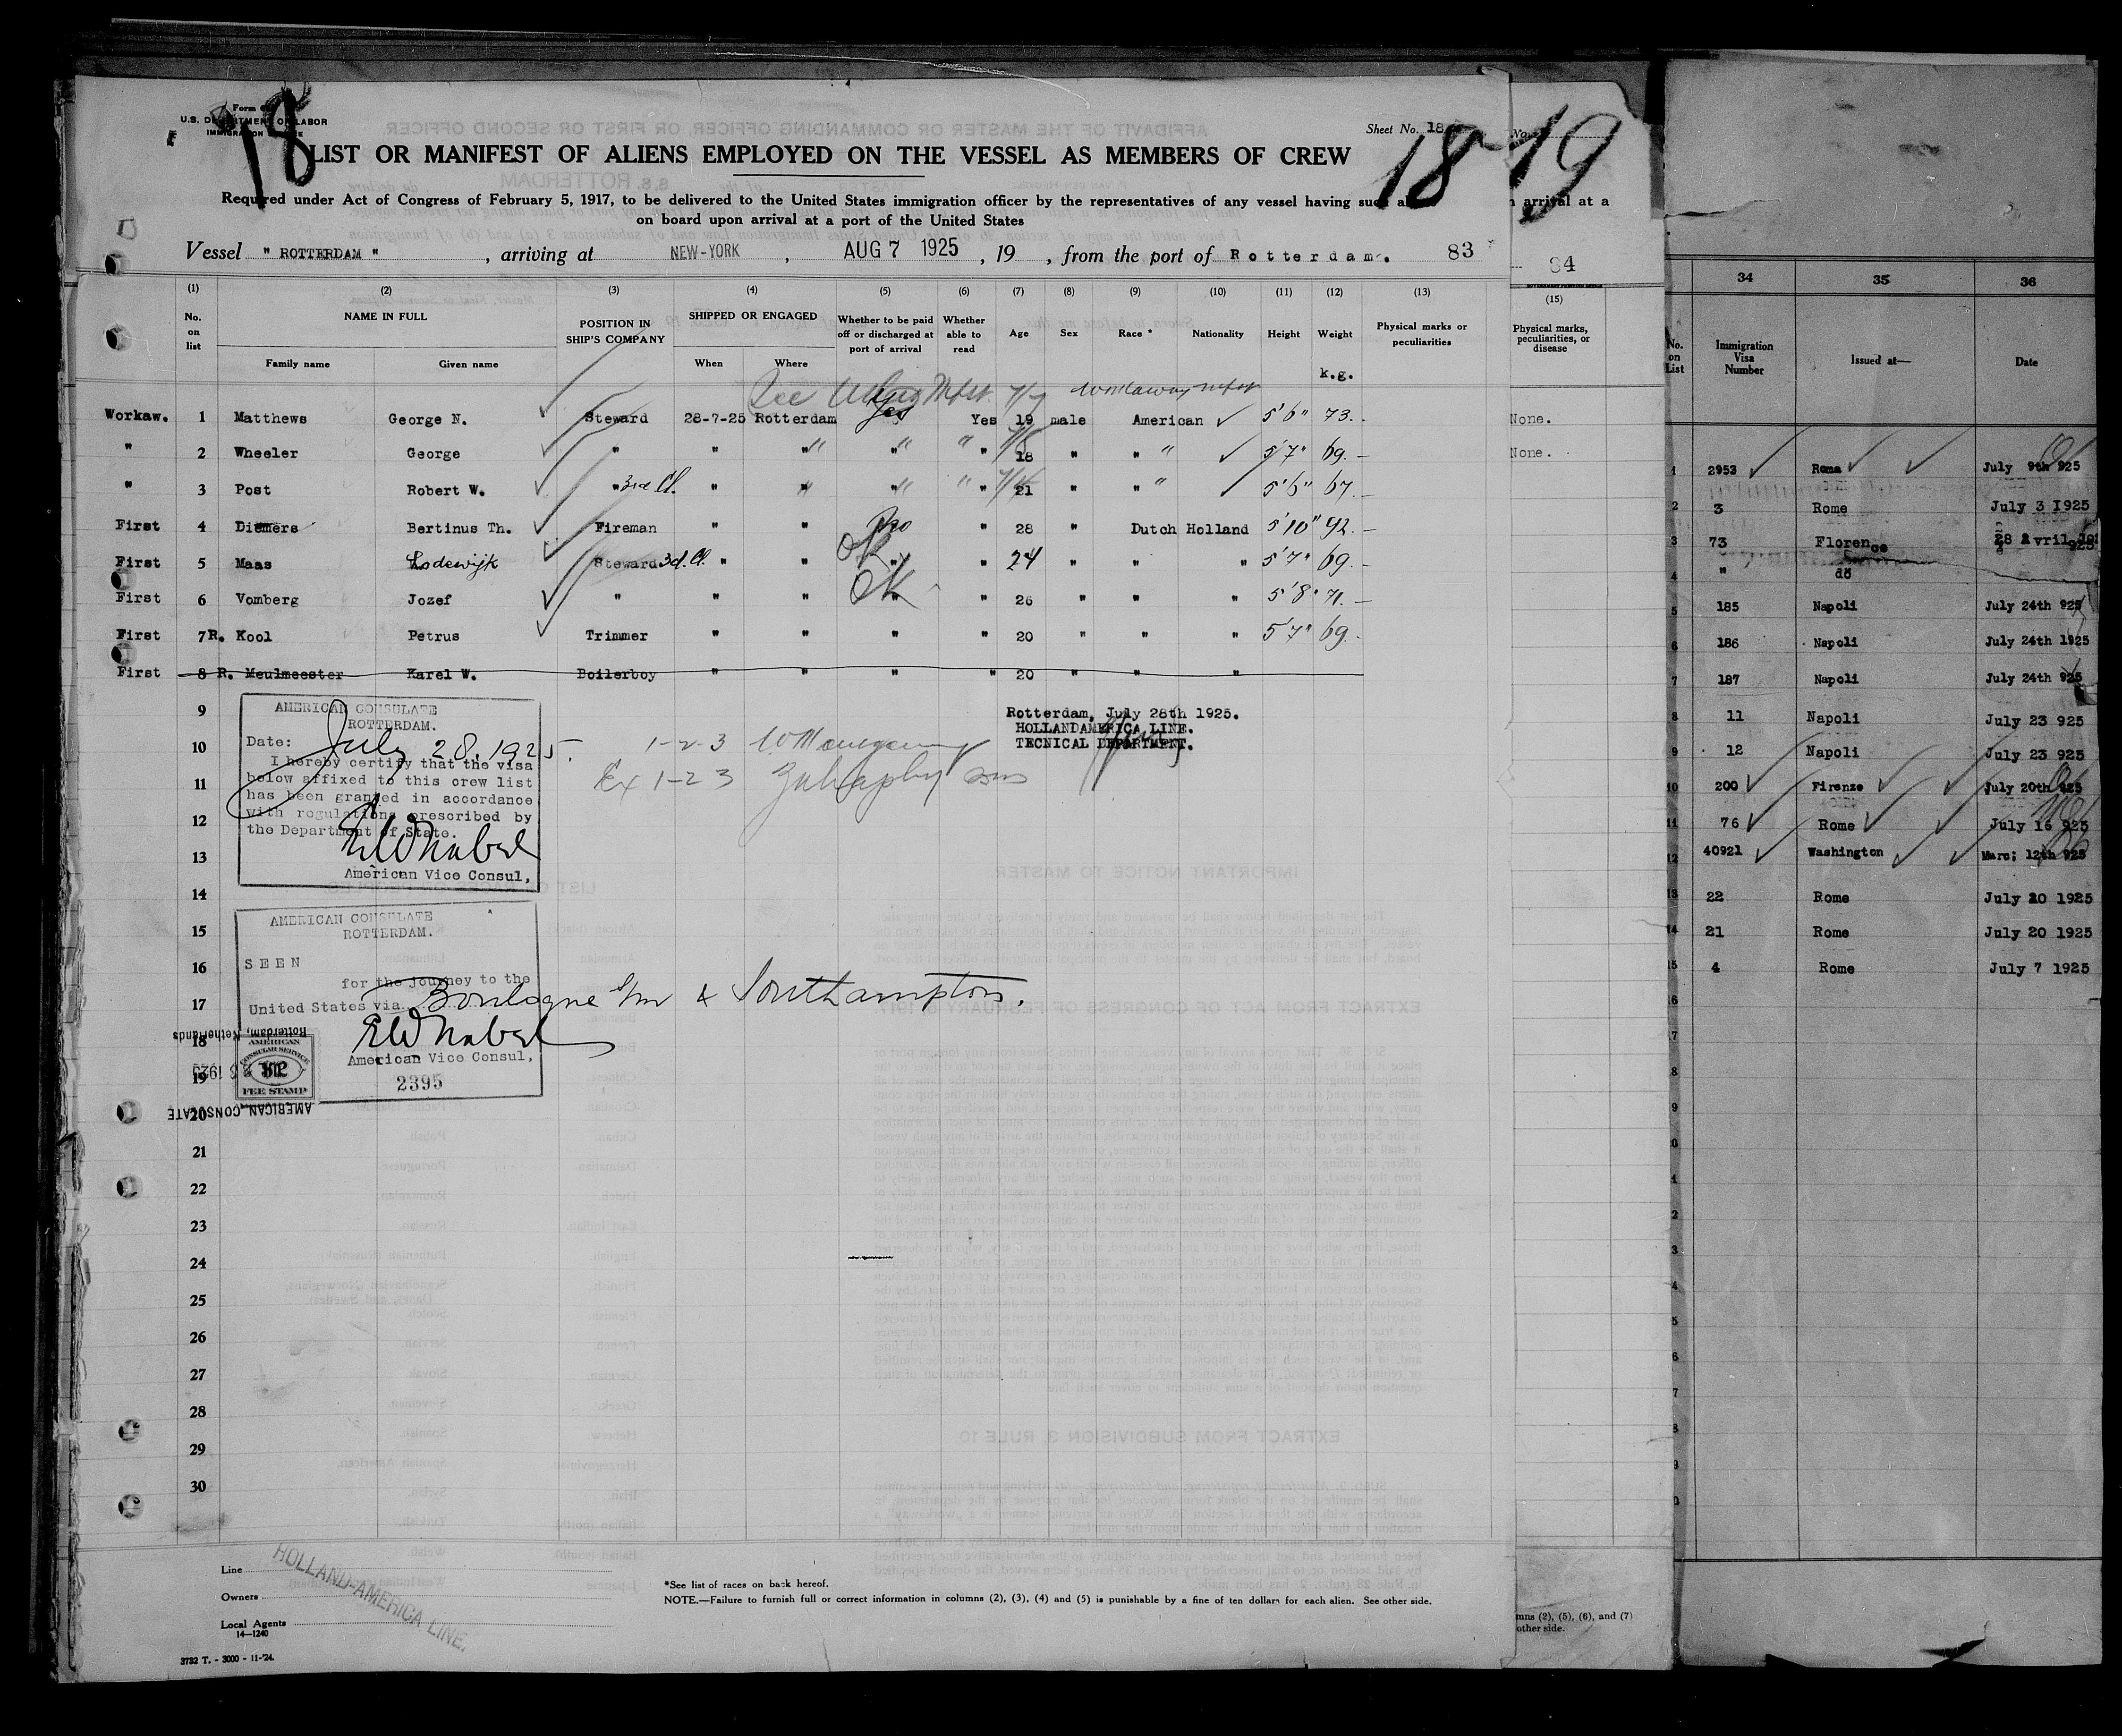 Form 6
U.S. DEPARTMENT OF LABOR
IMMIGRATION
18
Sheet No. 18
18
LIST OR MANIFEST OF ALIENS EMPLOYED ON THE VESSEL AS MEMBERS OF CREW
Required under Act of Congress of February 5, 1917, to be delivered to the United States immigration officer by the representatives of any vessel having such
on board upon arrival at a port of the United States
Vessel " ROTTERDAM " , arriving at NEW-YORK , AUG 7 1925 , 19 , from the port of Rotterdam. 83
(1) (2) (3) (4) (5) (6) (7) (8) (9) (10) (11) (12) (13)
No. on list NAME IN FULL Family name Given name POSITION IN SHIP'S COMPANY SHIPPED OR ENGAGED When Where Whether to be paid off or discharged at port of arrival Whether able to read Age Sex Race * Nationality Height Weight k.g. Physical marks or peculiarities
Workaw. 1 Matthews George N. Steward 28-7-25 Rotterdam Yes Yes 19 male American 5'6" 73.-
" 2 Wheeler George " " " " " 18 " " " 5'7" 69.-
" 3 Post Robert W. " 3rd Cl. " " " " 21 " " " 5'6" 67.-
First 4 Diemers Bertinus Th. Fireman " " No " 28 " Dutch Holland 5'10" 92.-
First 5 Maas Lodewijk Steward 3d. Cl. " " OK " " 24 " " " 5'7" 69.-
First 6 Vomberg Jozef " " " OK " " 26 " " " 5'8" 71.-
First 7 R. Kool Petrus Trimmer " " " " 20 " " " 5'7" 69.-
First 8 R. Meulmeester Karel W. Boilerboy " " " " 20 " " "
9
10
11
12
13
14
15
16
17
18
19
20
21
22
23
24
25
26
27
28
29
30
AMERICAN CONSULATE
ROTTERDAM.
Date: July 28. 1925.
I hereby certify that the visa
below affixed to this crew list
has been granted in accordance
with regulations prescribed by
the Department of State.
American Vice Consul,
Rotterdam, July 28th 1925.
HOLLANDAMERICA LINE.
TECNICAL DEPARTMENT.
1-2-3
Ex 1-2 3
AMERICAN CONSULATE
ROTTERDAM.
SEEN
for the journey to the
United States via Boulogne s/m & Southampton.
American Vice Consul,
2395
Rotterdam, Netherlands
AMERICAN
CONSULAR SERVICE
$2
FEE STAMP
AMERICAN CONSULATE
Line
Owners
Local Agents
14—1240
HOLLAND-AMERICA LINE.
*See list of races on back hereof.
NOTE.—Failure to furnish full or correct information in columns (2), (3), (4) and (5) is punishable by a fine of ten dollars for each alien. See other side.
3732 T. - 3000 - 11-'24.
No.
19
arrival at a
84
(15)
Physical marks, peculiarities, or disease
None.
None.
mns (2), (5), (6), and (7)
other side.
34 35 36
No. on List Immigration Visa Number Issued at— Date
1 2953 Roma July 9th 925
2 3 Rome July 3 1925
3 73 Florence 28 Avril 925
4 " do
5 185 Napoli July 24th 925
6 186 Napoli July 24th 1925
7 187 Napoli July 24th 925
8 11 Napoli July 23 925
9 12 Napoli July 23 925
10 200 Firenze July 20th 925
11 76 Rome July 16 925
12 40921 Washington Marc; 12th 925
13 22 Rome July 20 1925
14 21 Rome July 20 1925
15 4 Rome July 7 1925